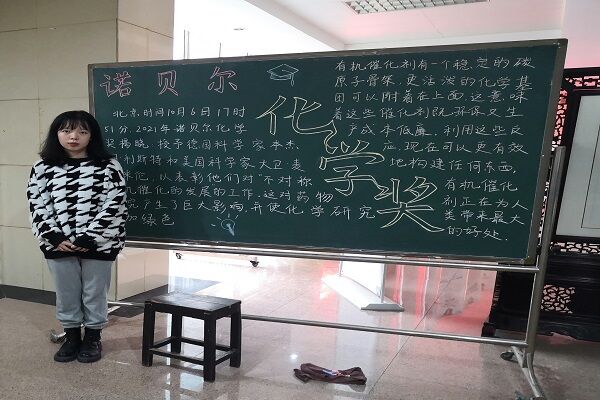 诺贝尔
化学奖
北京时间10月6日17时
51分,2021年诺贝尔化学
奖揭晓,授予德国科学家本杰
利斯特和美国科学家大卫·麦
米伦,以表彰他们对"不对称
机催化的发展的工作,这对药物
究产生了巨大影响,并使化学研究
加绿色
有机催化剂有一个稳定的碳
原子骨架,更活泼的化学基
团可以附着在上面,这意味
着这些催化剂既环保又生
产成本低廉,利用这些反
应,现在可以更有效
地构建任何东西,
有机催化
剂正在为人
类带来最大
的好处.